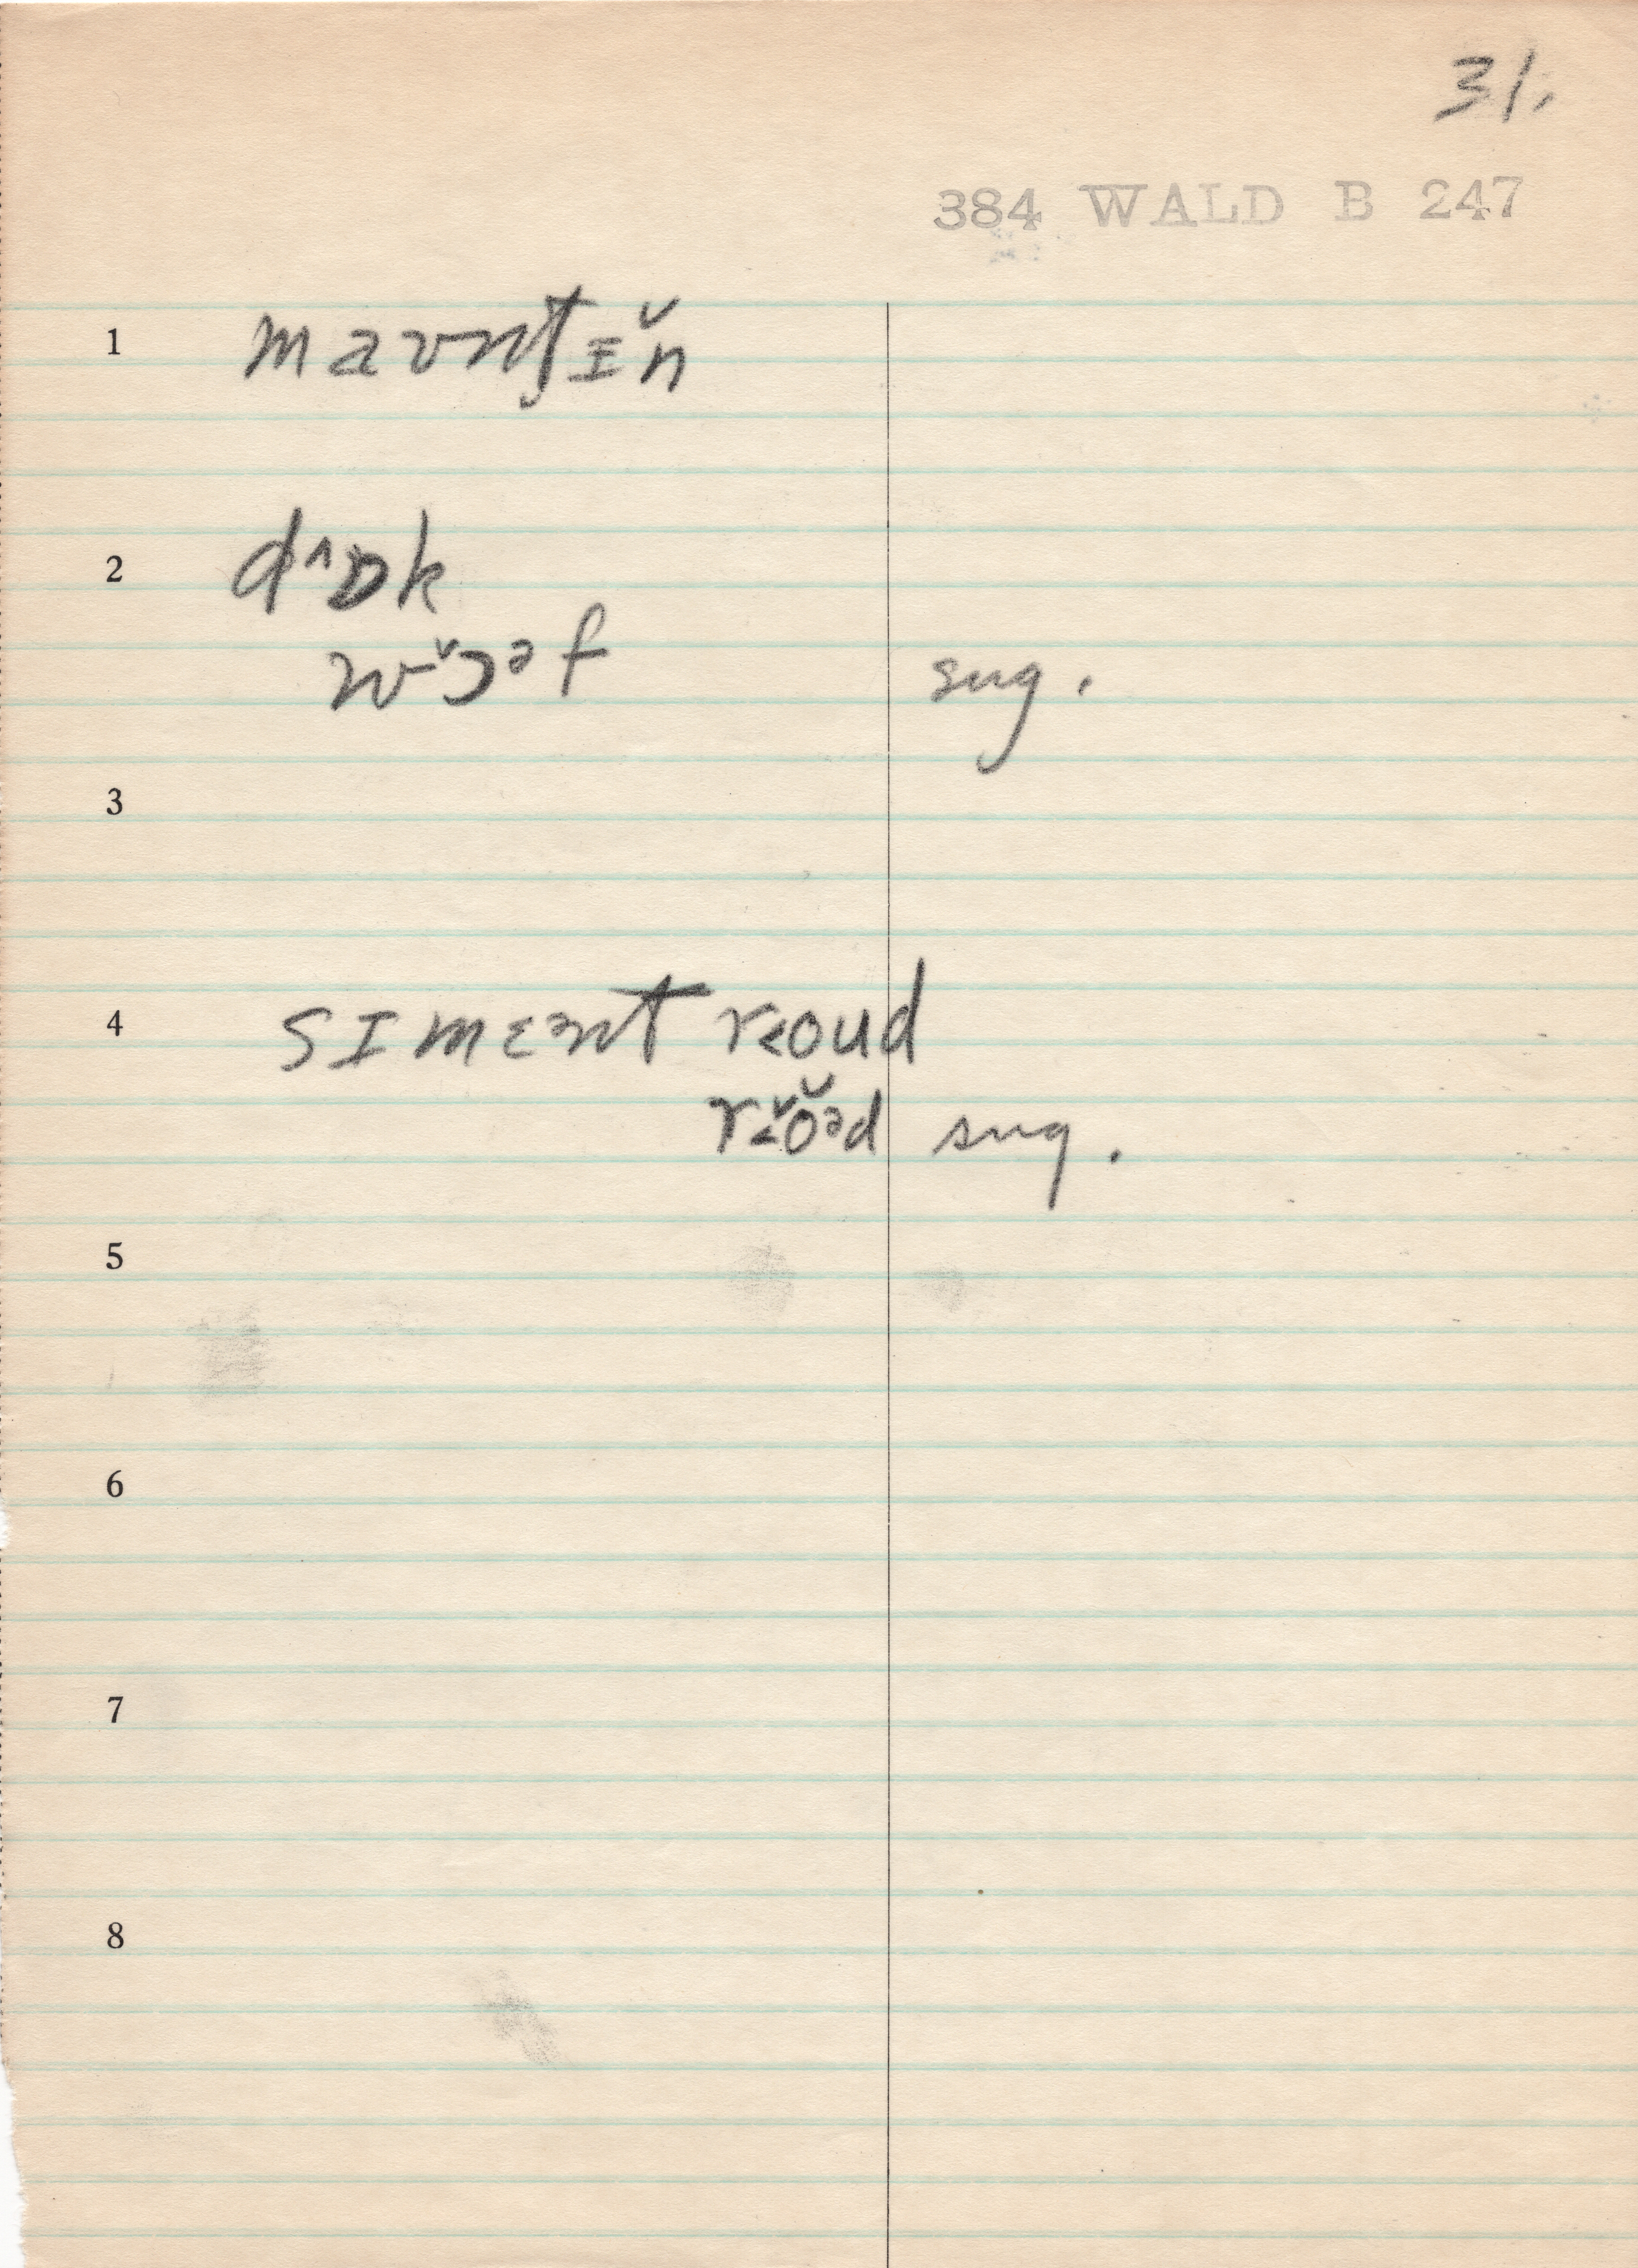 31.
384 WALD B 247
1 maʊntᵻ̆n
2 d^ɒk
wɔ̆ᵊf sug.
3
4 sɪmɛᵊnt r˂oud
r˂ŏᵊd sug.
5
6
7
8